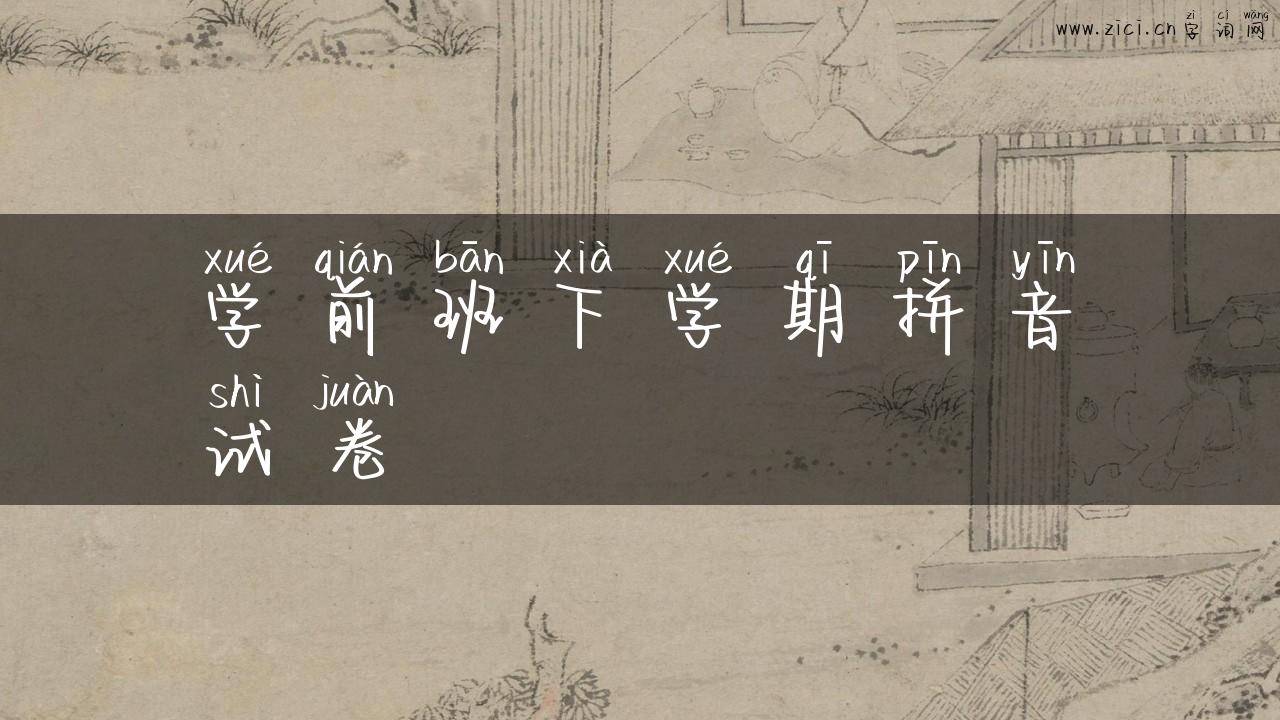 zì cí wǎng
www.zici.cn 字词网
xué qián bān xià xué qī pīn yīn
学前班下学期拼音
shì juàn
试卷